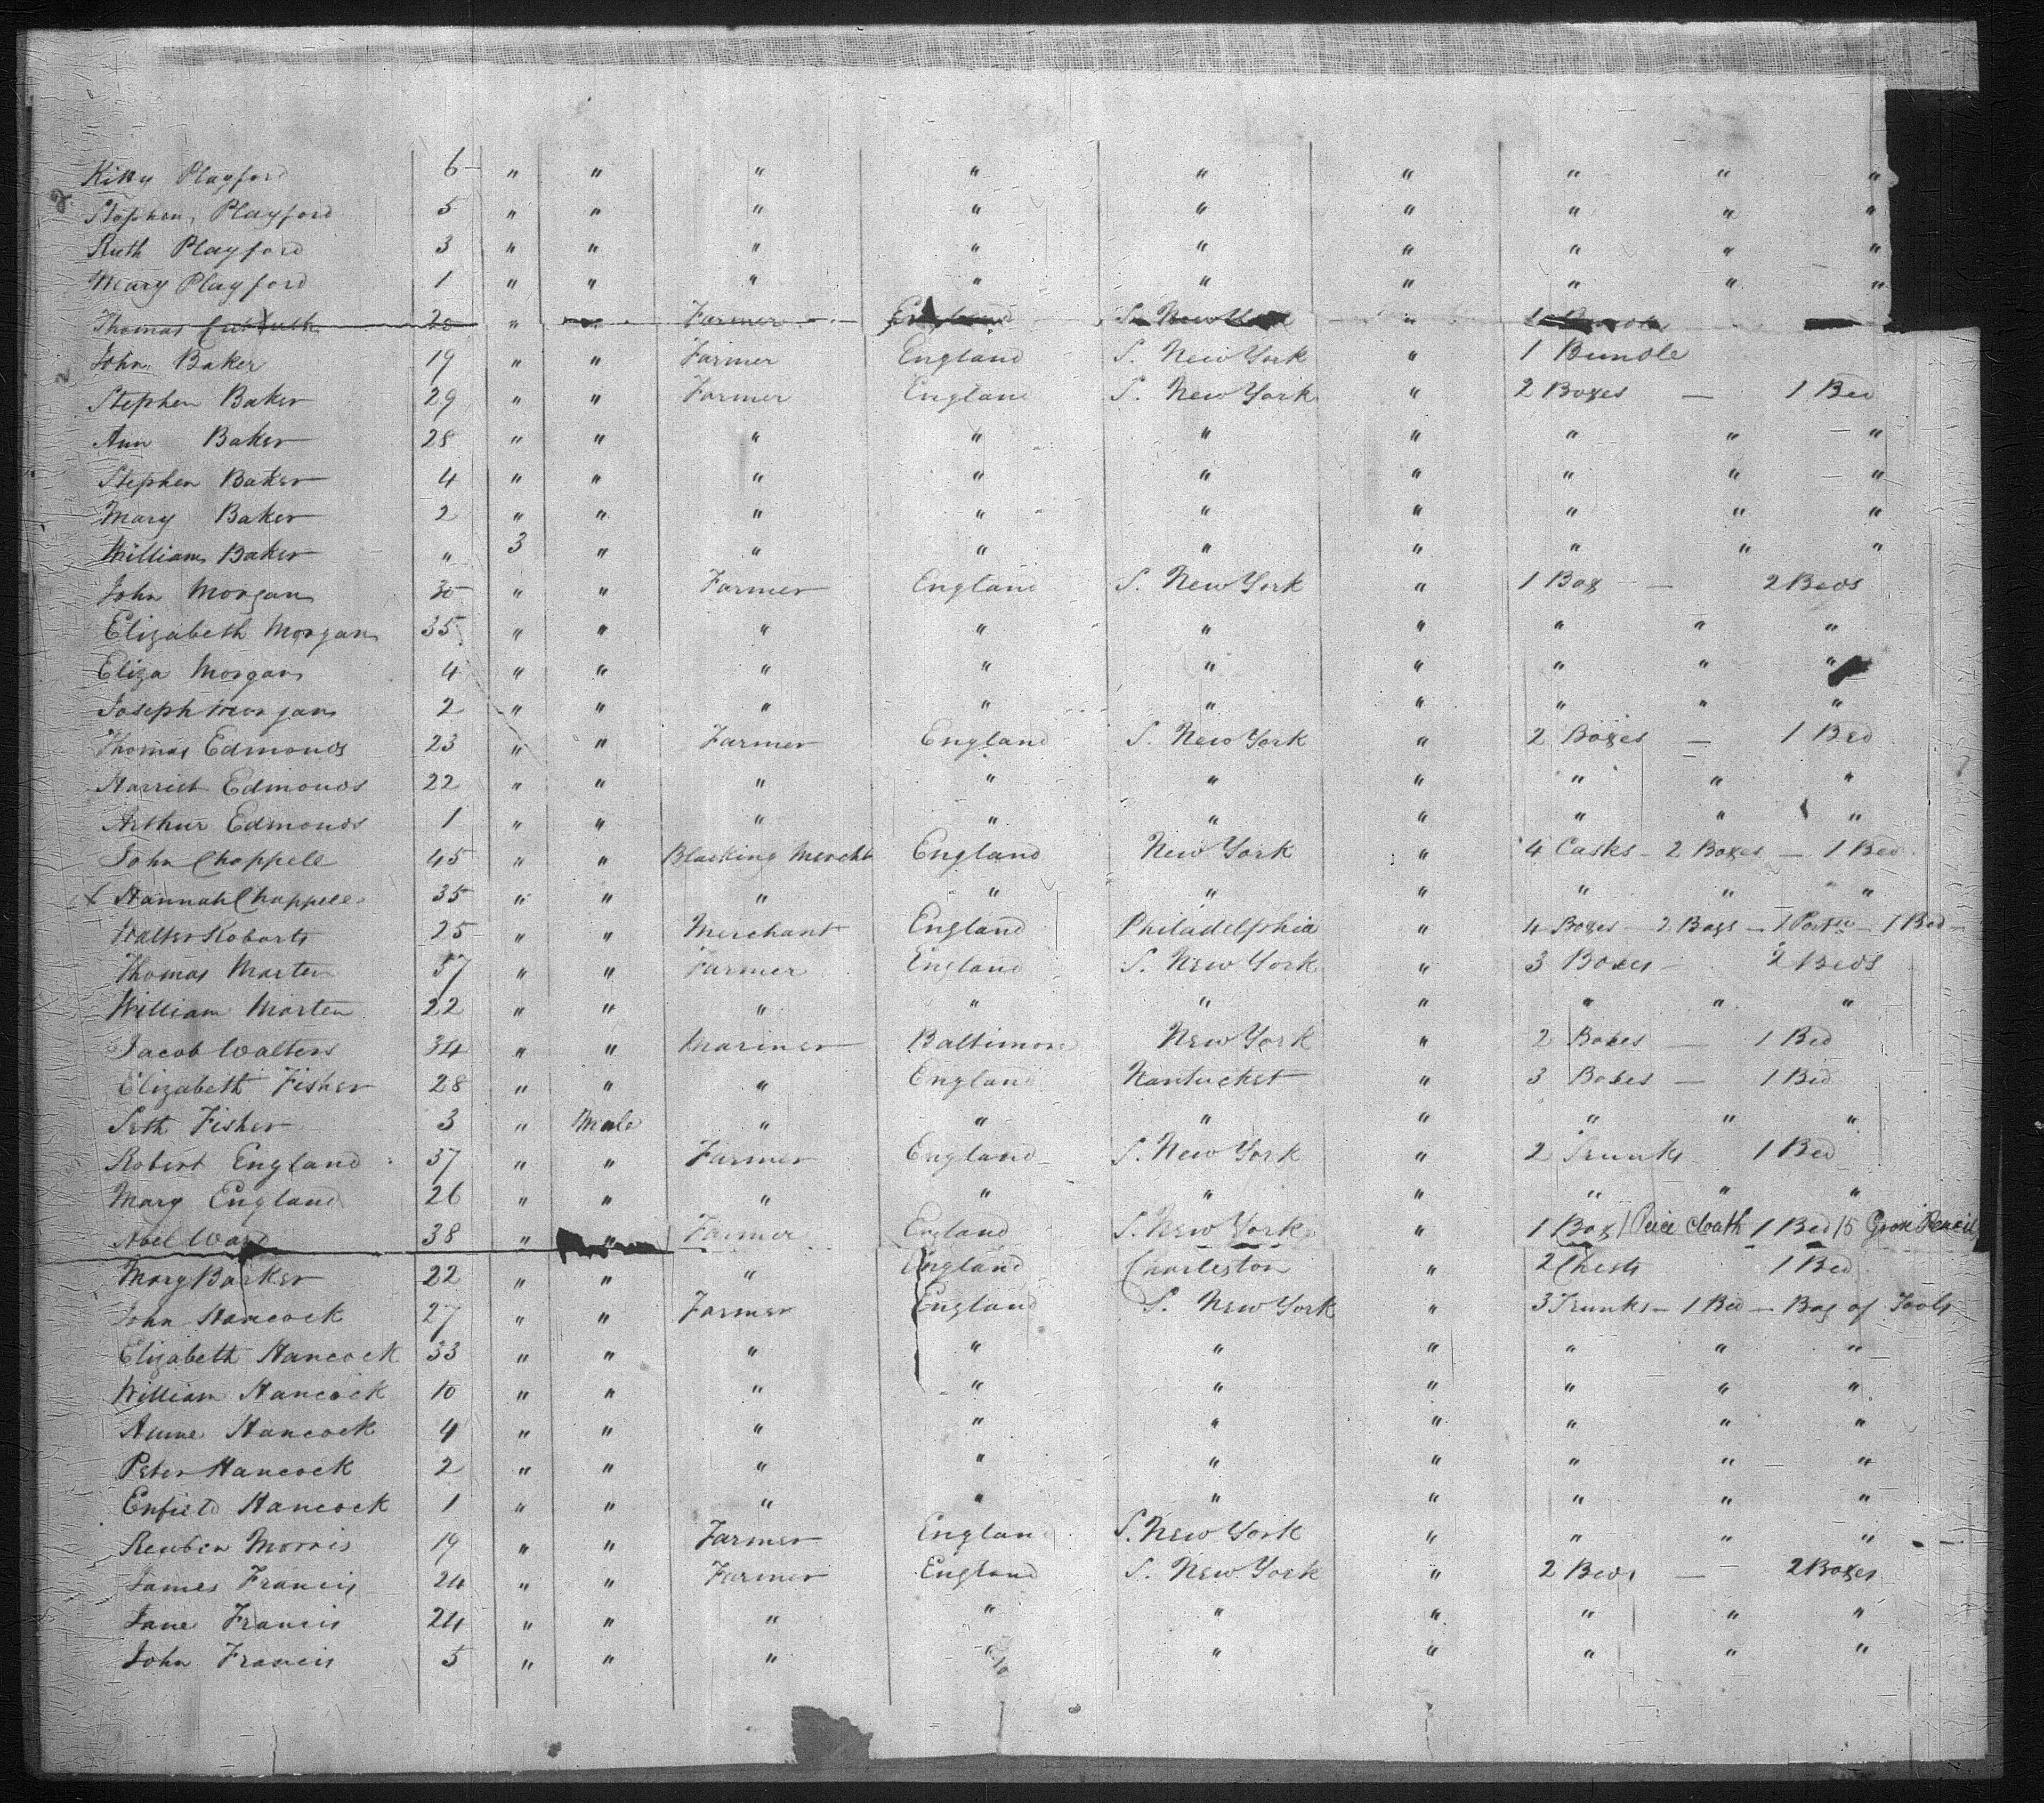 Kitty Playford 6 " " " " " " " " "
Stephen Playford 5 " " " " " " " " "
Ruth Playford 3 " " " " " " " " "
Mary Playford 1 " " " " " " " " "
Thomas 20 " " Farmer England S. New York " 1
John Baker 19 " " Farmer England S. New York " 1 Bundle
Stephen Baker 29 " " Farmer England S. New York " 2 Boxes — 1 Bed
Ann Baker 28 " " " " " " " " "
Stephen Baker 4 " " " " " " " " "
Mary Baker 2 " " " " " " " " "
William Baker " 3 " " " " " " " "
John Morgan 30 " " Farmer England S. New York " 1 Box — 2 Beds
Elizabeth Morgan 35 " " " " " " " " "
Eliza Morgan 4 " " " " " " " " "
Joseph Morgan 2 " " " " " " " " "
Thomas Edmonds 23 " " Farmer England S. New York " 2 Boxes — 1 Bed
Harriet Edmonds 22 " " " " " " " " "
Arthur Edmonds 1 " " " " " " " " "
John Chappell 45 " " Blacking Mercht England New York " 4 Casks — 2 Boxes — 1 Bed
x Hannah Chappell 35 " " " " " " " " "
Walter Robarts 25 " " Merchant England Philadelphia " 4 Boxes — 2 Bags — 1 — 1 Bed —
Thomas Marten 37 " " Farmer England S. New York " 3 Boxes — 2 Beds
William Marten 22 " " " " " " " " "
Jacob Walters 34 " " Mariner Baltimore New York " 2 Boxes — 1 Bed
Elizabeth Fisher 28 " " " England Nantucket " 3 Boxes — 1 Bed
Seth Fisher 3 " Male " " " " " " "
Robert England 37 " " Farmer England S. New York " 2 Trunks 1 Bed
Mary England 26 " " " " " " " " "
Abel Ward 38 " " Farmer England S. New York " 1 Box 1 Peice Cloath 1 Bed 15 Groce Pencils
Mary Barker 22 " " " England Charleston " 2 Chests 1 Bed
John Hancock 27 " " Farmer England S. New York " 3 Trunks — 1 Bed — Bag of Tools
Elizabeth Hancock 33 " " " " " " " " "
William Hancock 10 " " " " " " " " "
Hancock 4 " " " " " " " " "
Peter Hancock 2 " " " " " " " " "
Enfield Hancock 1 " " " " " " " " "
Reuben Morris 19 " " Farmer England S. New York " " " "
James Francis 24 " " Farmer England S. New York " 2 Beds — 2 Boxes
Jane Francis 24 " " " " " " " " "
John Francis 5 " " " " " " " " "